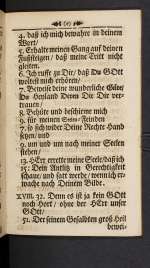 4. daß ich mich bewahre in deinem
Wort/
5. Erhalte meinen Gang auf deinen
Fußsteigen/ daß meine Tritt nicht
gleiten.
6. Ich ruffe zu Dir/ daß Du GOtt
wollest mich erhören/
7. Beweise deine wunderliche Güte/
Du Heyland Deren Die Dir ver-
trauen/
8. Behüte und beschirme mich
9. für meinen Feinden
7. so sich wider Deine Rechte Hand
setzen/ und
9. um und um nach meiner Seelen
stehen/
13. HErr errette meine Seele/ daß ich
15. Dein Antlitz in Gerechtigkeit
schaue/ und satt werde/ wenn ich er-
wache nach Deinem Bilde.
XVIII. 32. Denn es ist ja kein GOtt
noch Hort/ ohne der HErr unser
GOtt/
51. Der seinem Gesalbten groß Heil
bewei-